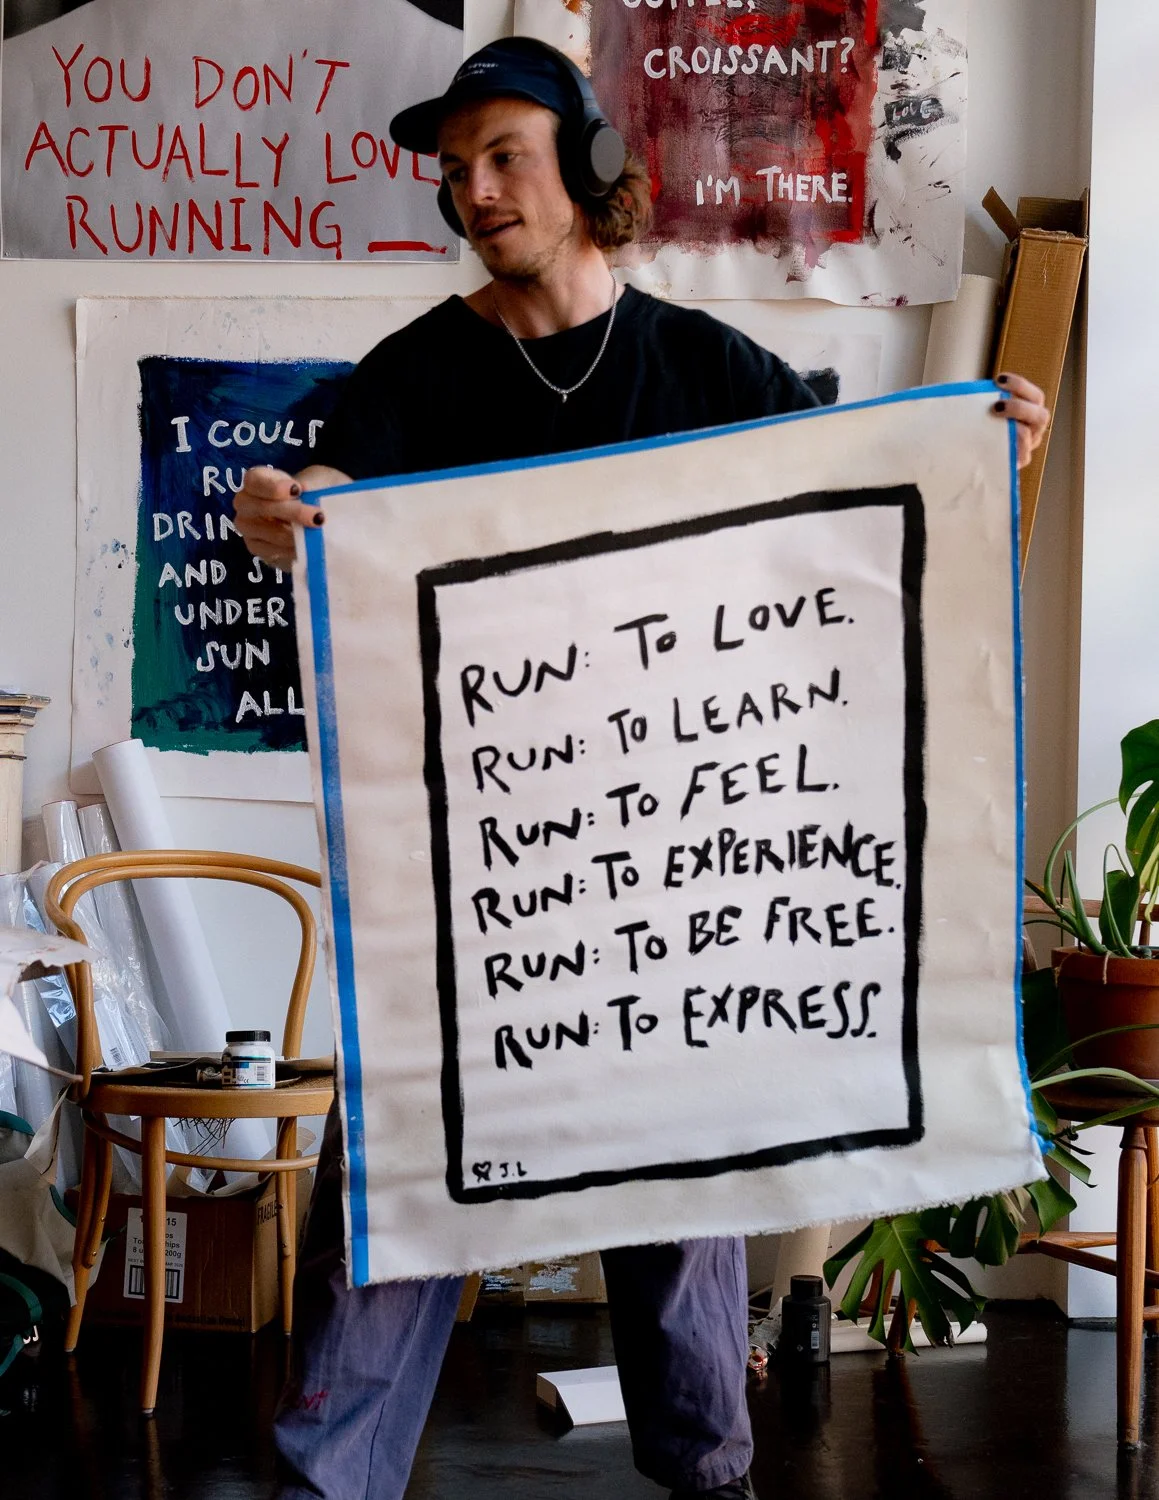 YOU DON'T
ACTUALLY LOVE
RUNNING
CROISSANT?
LOVE
I'M THERE.
I COULD
DRIN
AND
UNDER
SUN
ALL
RUN: TO LOVE.
RUN: TO LEARN.
RUN: TO FEEL.
RUN: TO EXPERIENCE.
RUN: TO BE FREE.
RUN: TO EXPRESS.
J.L
FRAGILE